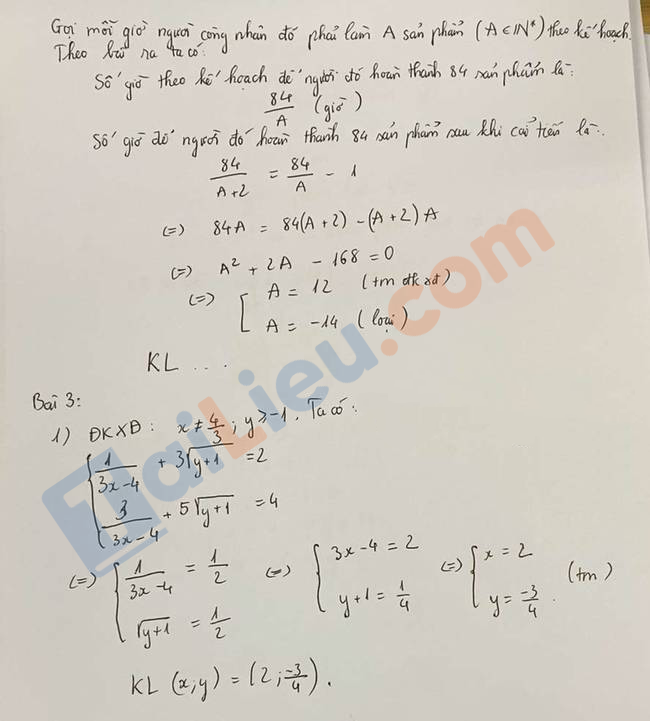 Gọi mỗi giờ người công nhân đó phải làm A sản phẩm (A ∈ ℕ*) theo kế hoạch.
Theo bài ra ta có:
Số giờ theo kế hoạch để người đó hoàn thành 84 sản phẩm là:
84/A (giờ)
Số giờ để người đó hoàn thành 84 sản phẩm sau khi cải tiến là:
84/(A+2) = 84/A - 1
(=) 84A = 84(A+2) - (A+2)A
(=) A² + 2A - 168 = 0
(=) [ A = 12 (tm đkxđ)
A = -14 (loại)
KL ....
Bài 3:
1) ĐKXĐ: x ≠ 4/3 ; y ≥ -1. Ta có:
{ 1/(3x-4) + 3√(y+1) = 2
3/(3x-4) + 5√(y+1) = 4
(=) { 1/(3x-4) = 1/2 (=) { 3x-4 = 2 (=) { x = 2 (tm)
√(y+1) = 1/2 y+1 = 1/4 y = -3/4.
KL (x;y) = (2; -3/4).
TaiLieu.com